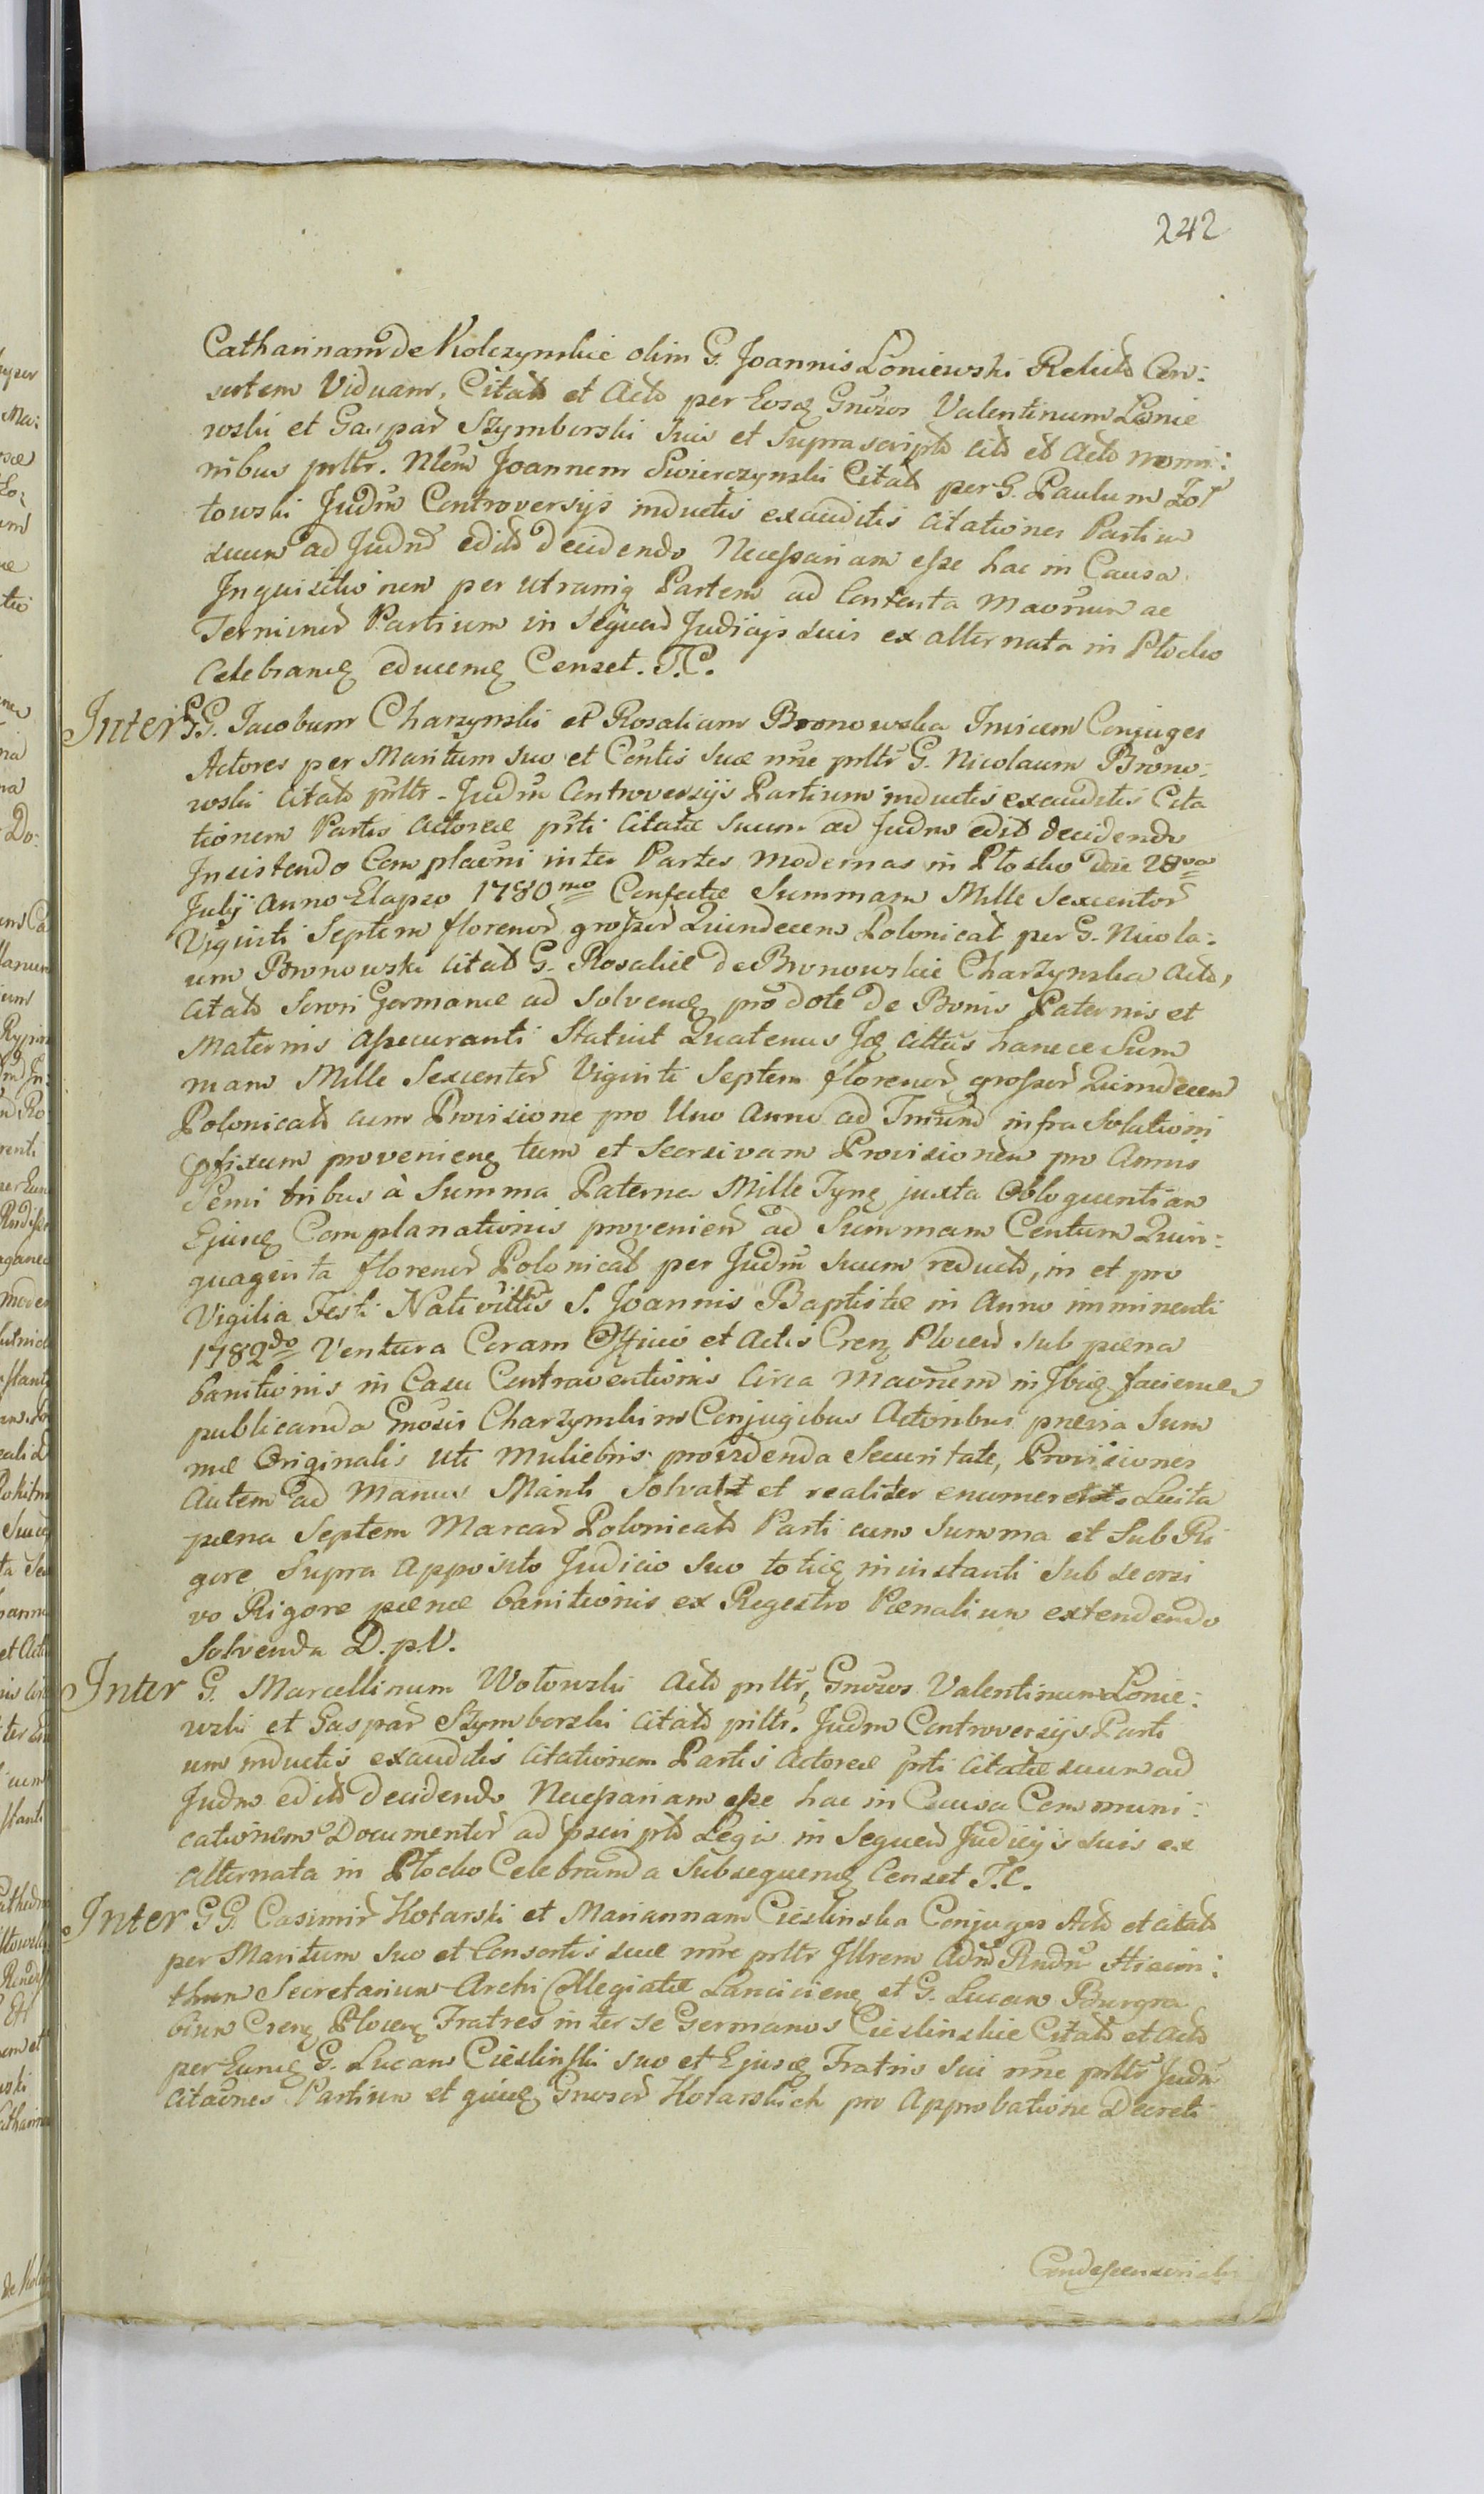 242
Catharinam de Kolczynskie olim G. Joannis Łoniewski Relict Con:
sortem Viduam, Citat et Act per Eosq Gnosos Valentinum Łonie
wski et Gaspar Szymborski suis et suprascript cit et Act nomi:
nibus prltr. Nlem Joannem Swierczynski Citat per G. Paulum Zoł
towski Judm Controversijs inductis exauditis Citationes Partium
suum ad Judm edit decidendo Necessariam esse hac in Causa
Inquisitionem per utramq Partem ad Contenta Maorum ac
Terminor Partium in Sequen Judicijs suis ex alternata in Płocko
Celebranq educenq Censet. T.C.
Inter GG. Jacobum Charzynski et Rosaliam Bronowska Invicem Conjuges
Actores per Maritum suo et Contis suæ nne prltr G. Nicolaum Brono:
wski Citat prltr. Judm Controversijs Partium inductis exauditis Cita
tionem Partis Actoreæ prti Citatæ suum ad Judm edit decidendo
Insistendo Complaoni inter Partes modernas in Płocko die 28va
Julij Anno Elapso 1780mo Confectæ Summam Mille Sexcentor
Viginti Septem florenor grossor Quindecem Polonical per G. Nicola:
um Bronowski Citat G. Rosaliæ de Bronowskie Charzynska Act,
Citat Sorori Germanæ ad solvenq pro dote de Bonis Paternis et
Maternis Assecuranti Statuit Quatenus Iq Cittus hancce Sum
mam Mille Sexcentor Viginti Septem florenor grossor Quindecem
Polonicat cum Provisione pro Uno Anno ad Tmum infra Solutioni
pfixum provenienq tum et Seorsivam Provisionem pro Annis
Semi tribus à Summa Paterna Mille Tynq juxta Obloquentiam
Ejusq Complanationis provenien ad Summam Centum Quin:
quaginta florenor Polonicat per Judm suum reduct, in et pro
Vigilia Festi Nativittis S. Joannis Baptistæ in Anno imminenti
1782do Ventura Coram Officio et Actis Crenq Plocen sub pæna
banitionis in Casu Contraventionis Circa Maorum in Jbiq facienda
publicanda Gnosis Charzynskim Conjugibus Actoribus prævia Sum
mæ Originalis uti Muliebris providenda Securitate, Provisiones
Autem ad Manus Mariti Solvat et realiter enumeret. Luita
pæna Septem Marcar Polonicat Parti cum Summa et sub Ri
gore Supra Apposito Judicio suo totiq in instanti sub seorsi
vo Rigore pænæ banitionis ex Regestro Pænalium extendendo
Solvenda D.p.U.
Inter G. Marcellinum Wołowski Act prltr, Gnosos Valentinum Łonie:
wski et Gaspar Szymborski Citat prltr. Judm Controversijs Parti
um inductis exauditis Citationem Partis Actoreæ prti Citatæ suum ad
Judm edit decidendo Necessariam esse hac in Causa Communi:
cationem Documentor ad pscript Legis in Sequen Judicijs suis ex
Alternata in Płocko Celebranda Subsequenq Censet T.C.
Inter GG. Casimir Kotarski et Mariannam Cieslinska Conjuges Act et citat
per Maritum suo et Consortis suæ nne prltr Jllrem Adm Rndm Hiacin:
thum Secretarium Archi Collegiatæ Lancicienq et G. Lucam Burgra
bium Crenq Plocenq Fratres inter se Germanos Cieslinskie Citat et Act
per Eunq G. Lucam Cieslinski suo et Ejusq Fratris sui nne prltr Judm
Citaones Partium et quieq Gnosor Kotarskich pro Approbatione Decreti
Condescensorialis